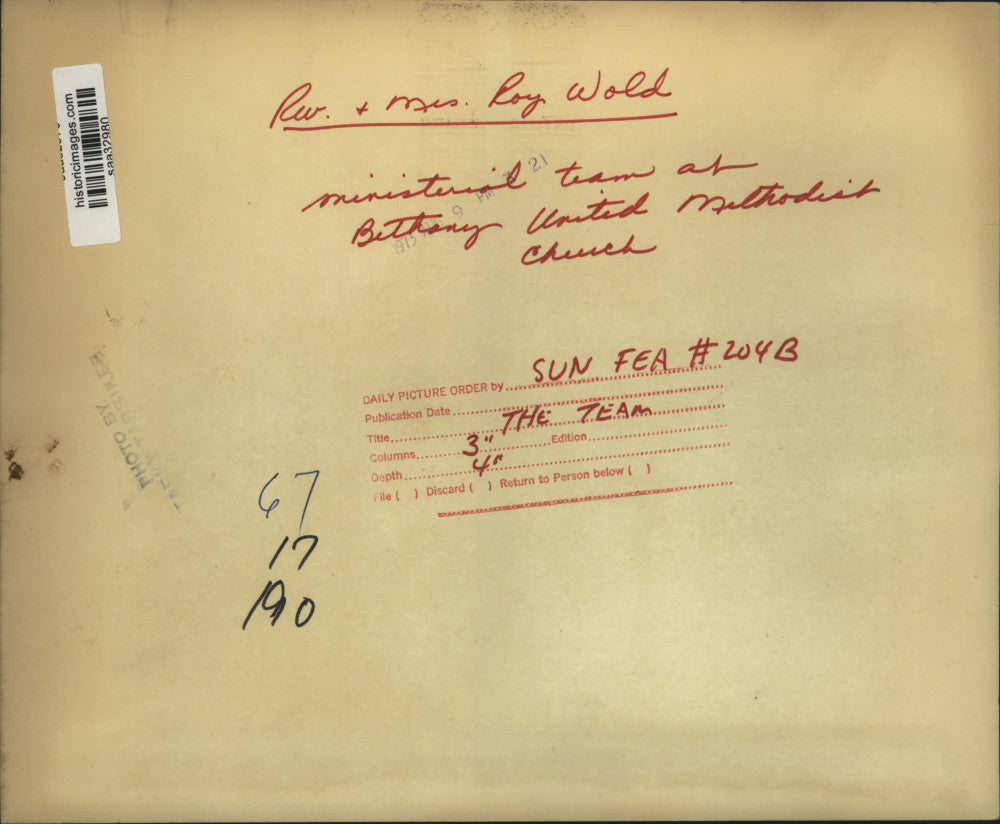 historicimages.com
saa32980
Rev. + Mrs. Roy Wold
ministerial team at
Bethany United Methodist
Church
1973 9 PM 21
PHOTO BY
SUN FEA #204B
DAILY PICTURE ORDER by
Publication Date
Title THE TEAM
Columns 3" Edition
Depth 4"
File ( ) Discard ( ) Return to Person below ( )
67
17
190